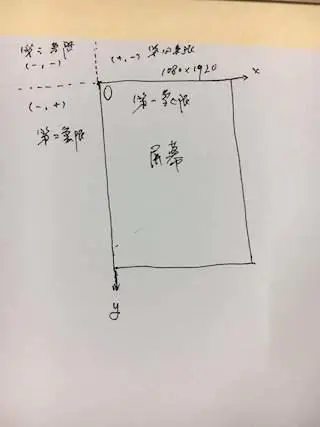 第三象限
(-, -)
(+, -) 第四象限
1080 x 1920
x
O
第一象限
(-, +)
第二象限
屏幕
y